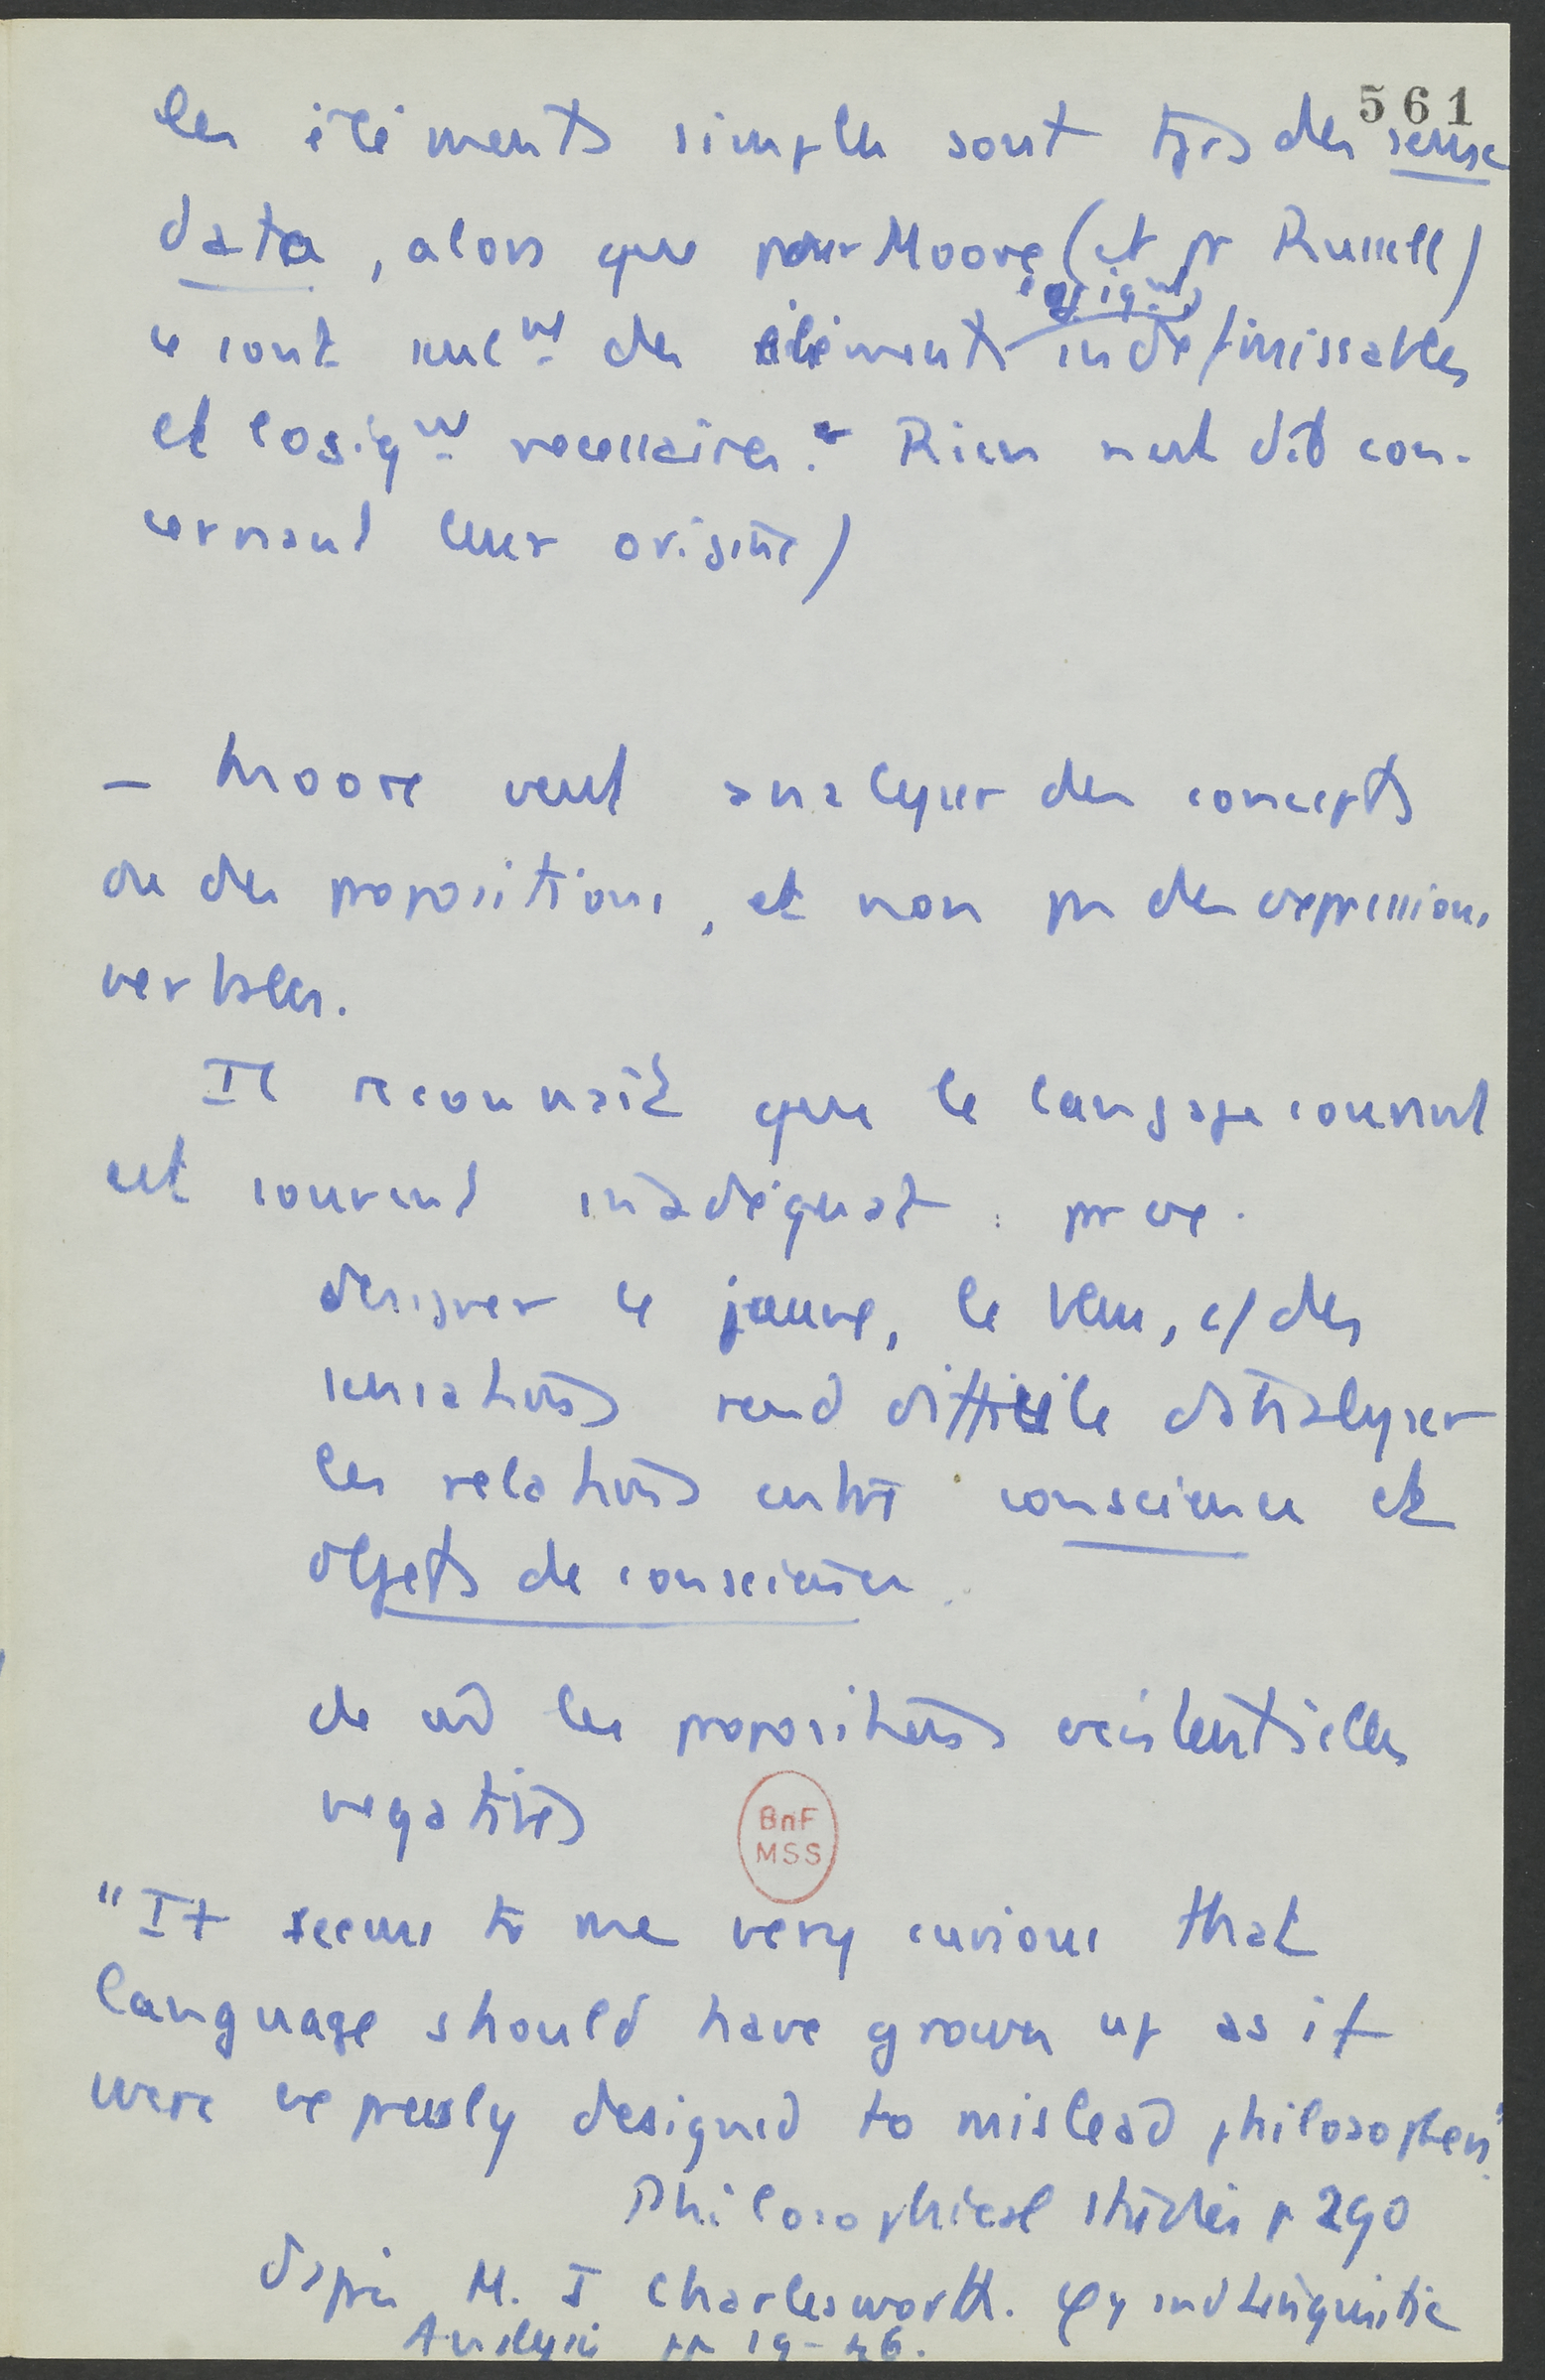 561
les éléments simples sont tjrs des sense
data, alors que pour Moore (et pr Russell)
ce sont seulmt des éléments indéfinissables
et logiqmt necessaires. Rien n'est dit con-
cernant leur origine)
– Moore veut analyser des concepts
ou des propositions, et non pas des expressions
verbales.
Il reconnait que le langage courant
est souvent inadéquat : pr ex.
designer le jaune, le bleu, c/ des
sensations rend difficile d'analyser
les relations entre conscience et
objets de conscience.
de les propositions existentielles
negatives
BnF
MSS
"It seems to me very curious that
language should have grown up as if
were expressly designed to mislead philosophers"
Philosophical Studies p 290
d'après M. J Charlesworth. φy and Linguistic
Analysis pp 19-46.